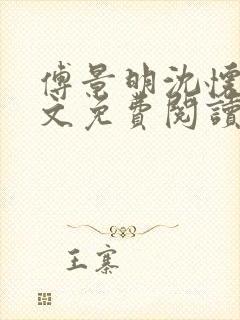 傅景明沈懷
文免費閱讀
王寨